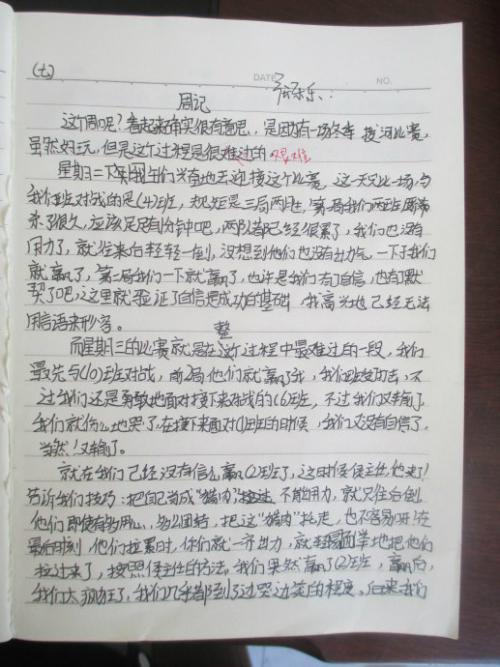 (七) DATE NO.
周记
这个周吧?看起来确实很有意思,是因为有一场冬季拔河比赛,
虽然好玩,但是这个过程是很难过的 艰难
星期二下午我们兴奋地去迎接这个比赛,这一天只比一场,与
我们班对战的是(4)班,规矩是三局两胜,第一局我们两班
了很久,应该足足有1分钟吧,两队都已经很累了,我们也没有
用力了,就往来自轻轻一倒,没想到他们也没有出力气,一下子我们
就赢了,第二局我们一下就赢了,也许是我们有了自信,也有了默
契了吧,这里就验证了自信把成功的基础,我高兴地已经无法
用言语来形容。
整
而星期三的比赛就是在这个过程中最难过的一段,我们
最先与(10)班对战,前2局他们就赢了我,我们
过我们还是勇敢地面对接下来对战的(6)班,不过我们又输了,
我们就伤心地哭了,在接下来面对(1)班的时候,我们又没有自信了,
当然!又输了。
就在我们已经没有信心赢(2)班了,这时候侯主任,他来了!
告诉我们技巧:把自己当成"猪肉",不能用力,就只往后倒,
他们即使有多用心,多么团结,把这"猪肉"拖走,也不容易呀!在
最后时刻,他们拉累时,你们就一齐出力,就轻而易举地把他们
拉过来了,按照侯主任的方法,我们果然赢了(2)班,赢后,
我们太疯狂了,我们几乎都到了边哭边笑的程度。后来我们